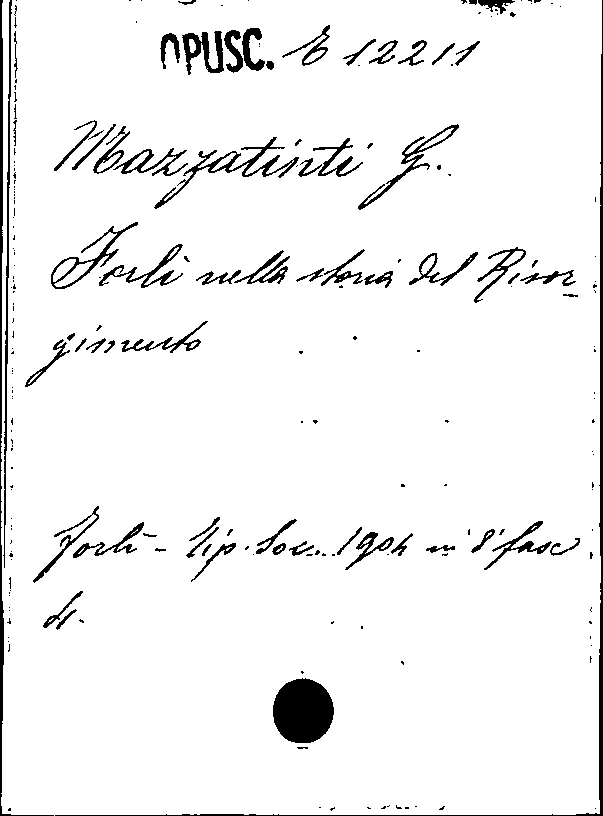 OPUSC. E 12211
Mazzatinti G.
Forlì nella storia del Risor-
gimento
Forlì - Tip. Soc. 1904 in 8° fasc
4.